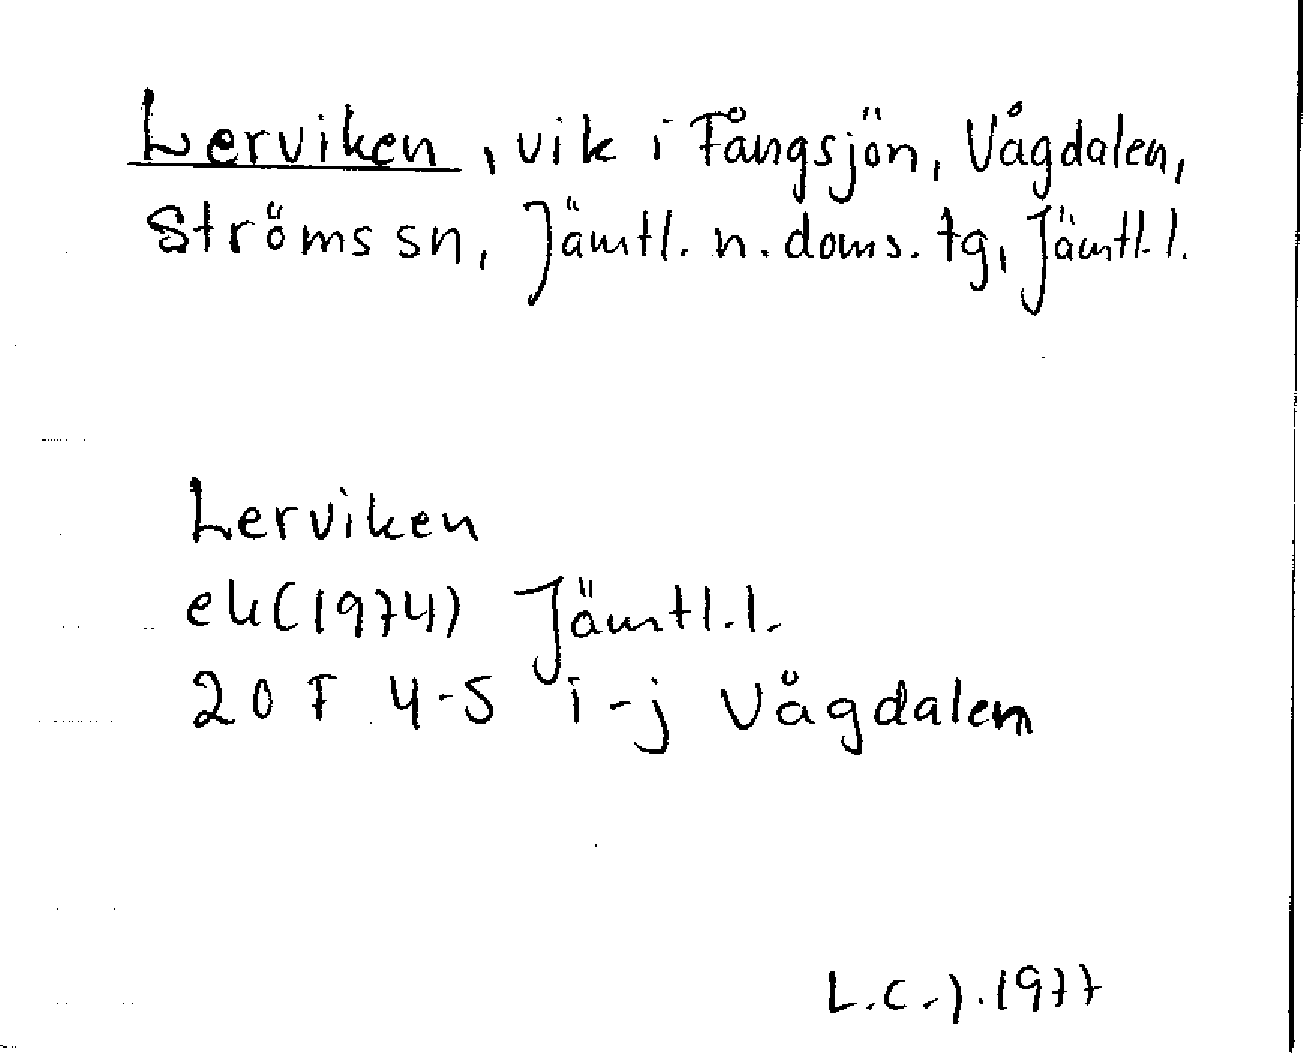 Lerviken, vik i Fångsjön, Vågdalen,
Ströms sn, Jämtl. n. doms. tg, Jämtl. l.
Lerviken
ek (1974) Jämtl. l.
20 F 4-5 i-j Vågdalen
L.C.J. 1977